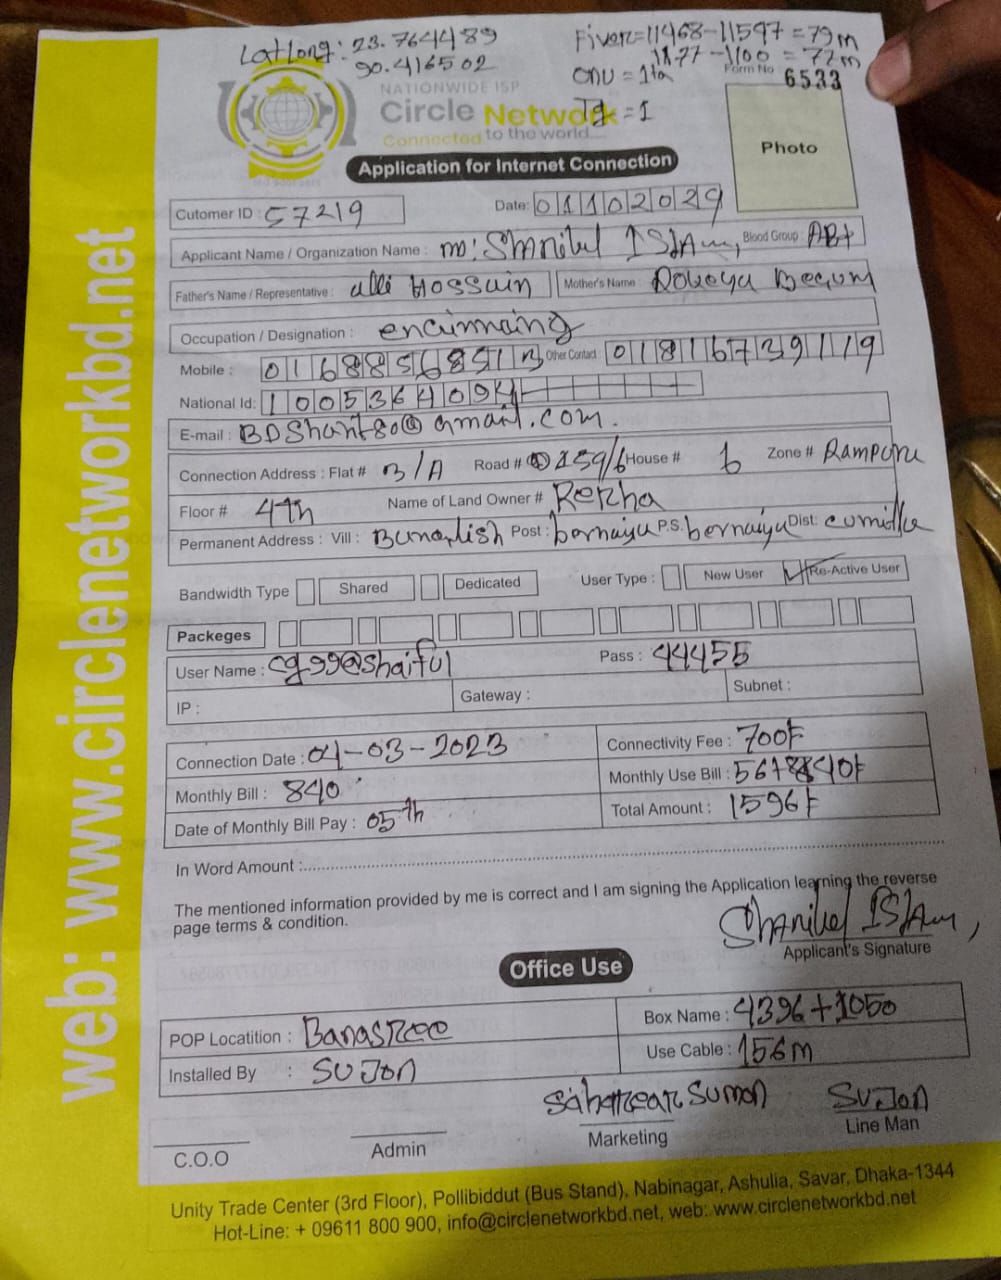 LatLong: 23.764489
90.416502
Fiver=11468-11597 = 79m
1877-1100 = 77m
ONU = 1ta
Tg = 1
Form No 6533
NATIONWIDE ISP
Circle Network
Connected to the world....
Photo
Application for Internet Connection
Cutomer ID : 57219
Date: 01102029
Applicant Name / Organization Name : ISlAm, Blood Group : AB+
Father's Name / Representative : Hossain Mother's Name : Begum
Occupation / Designation : encinnaing
Mobile : Other Contact 01816739119
National Id: 1005364094
E-mail : BDShant80@gmail.com.
Connection Address : Flat # 3/A Road # 259/6 House # 6 Zone # Rampura
Floor # 4th Name of Land Owner # Rekha
Permanent Address : Vill : Post : P.S. Dist: cumilla
Bandwidth Type Shared Dedicated User Type : New User Re-Active User
Packeges
User Name : cg99@shaiful Pass : 44455
IP : Gateway : Subnet :
Connection Date : 04-03-2023 Connectivity Fee : 700F
Monthly Bill : 840 Monthly Use Bill :
Date of Monthly Bill Pay : 05th Total Amount : 1596F
In Word Amount :
The mentioned information provided by me is correct and I am signing the Application learning the reverse
page terms & condition.
ISlAm,
Applicant's Signature
Office Use
POP Locatition : Banasree Box Name : 4396+1050
Installed By : SUJon Use Cable : 156m
Sumon SUJon
C.O.O Admin Marketing Line Man
Unity Trade Center (3rd Floor), Pollibiddut (Bus Stand), Nabinagar, Ashulia, Savar, Dhaka-1344
Hot-Line: + 09611 800 900, info@circlenetworkbd.net, web: www.circlenetworkbd.net
web: www.circlenetworkbd.net